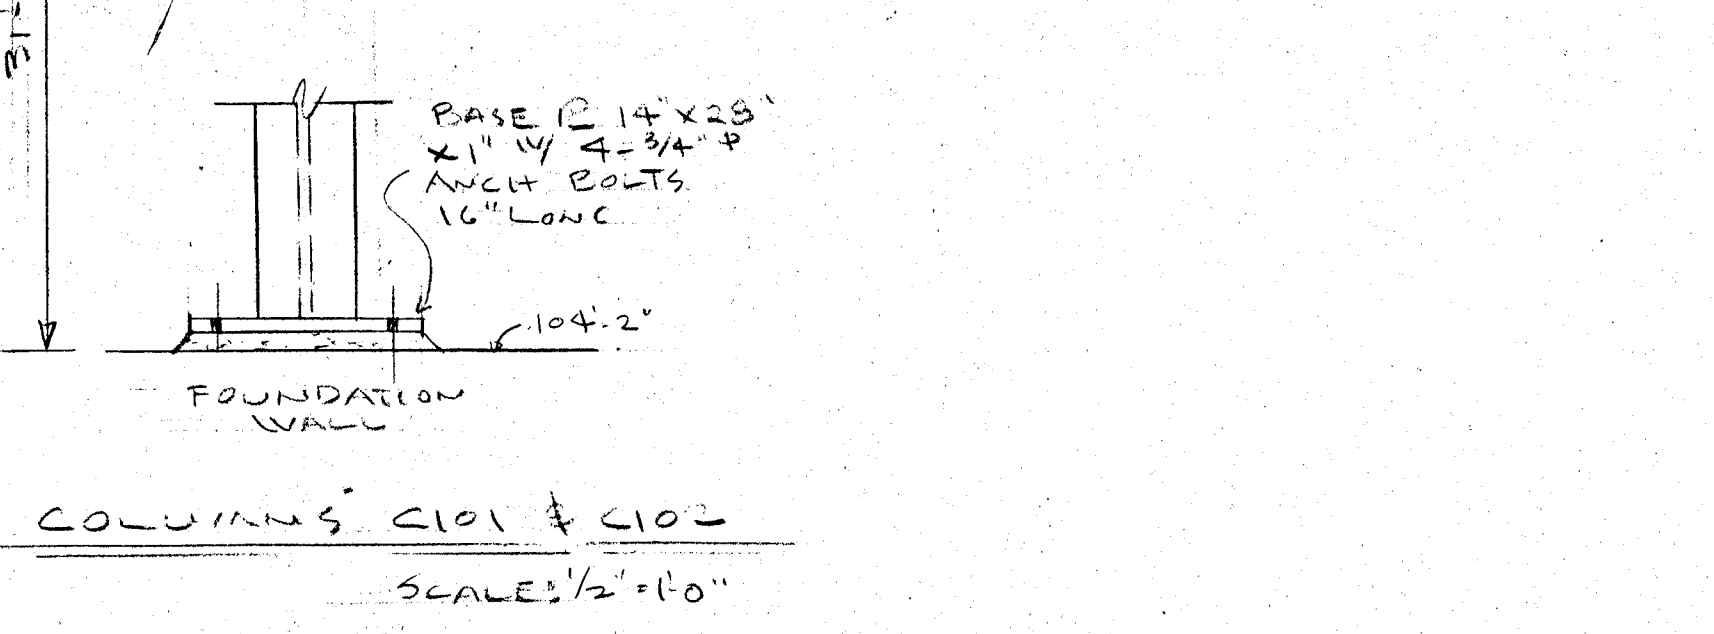 BASE PL 14" X 28"
X 1" W/ 4-3/4" φ
ANCH BOLTS
16" LONG
104'-2"
FOUNDATION
WALL
COLUMNS C101 & C102
SCALE: 1/2" = 1'-0"